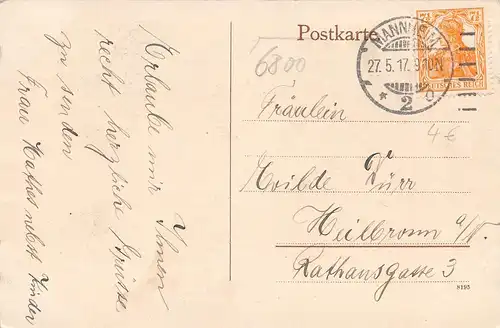 Postkarte
MANNHEIM
27.5.17. 9-10N
* 2 c
7½ 7½
DEUTSCHES REICH
6800
4€
Erlaube mir Ihnen
recht herzliche Grüsse
zu senden
Frau Mathes nebst Kinder
Fräulein
Milde Dürr
Heilbronn a/N.
Rathausgasse 3
8195